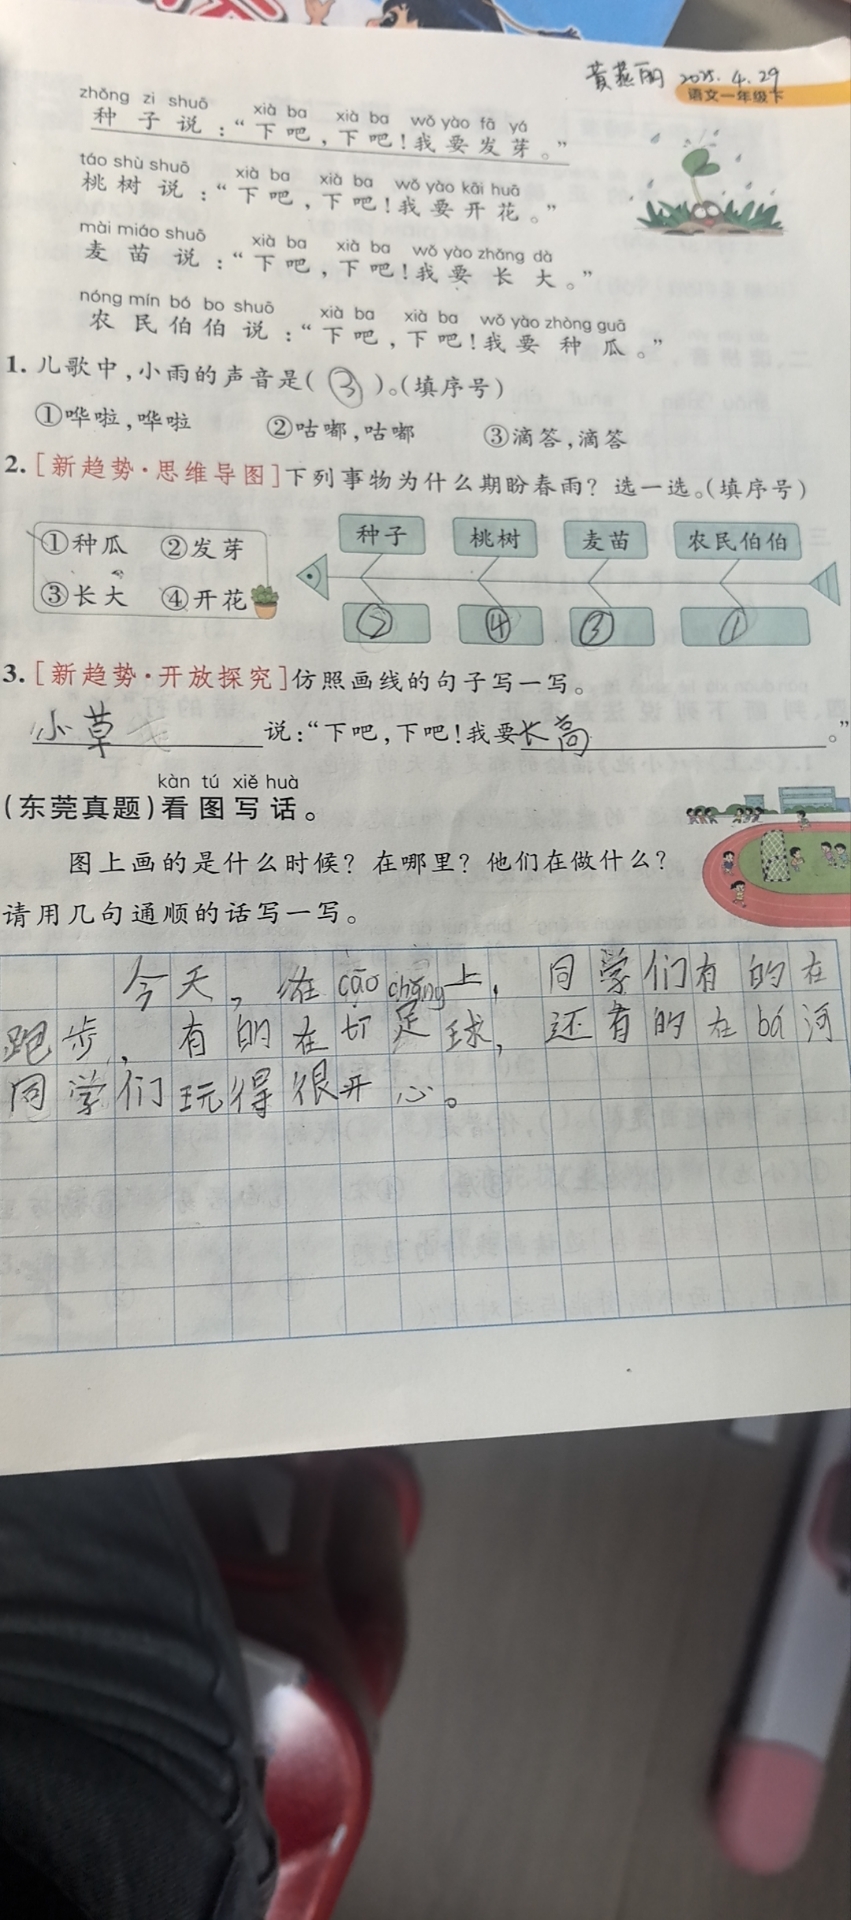 黄燕丽 2025.4.29
语文一年级下
zhǒng zi shuō xià ba xià ba wǒ yào fā yá
种子说：“下吧，下吧！我要发芽。”
táo shù shuō xià ba xià ba wǒ yào kāi huā
桃树说：“下吧，下吧！我要开花。”
mài miáo shuō xià ba xià ba wǒ yào zhǎng dà
麦苗说：“下吧，下吧！我要长大。”
nóng mín bó bo shuō xià ba xià ba wǒ yào zhòng guā
农民伯伯说：“下吧，下吧！我要种瓜。”
1. 儿歌中，小雨的声音是( ③ )。(填序号)
①哗啦，哗啦 ②咕嘟，咕嘟 ③滴答，滴答
2. [新趋势·思维导图]下列事物为什么期盼春雨？选一选。(填序号)
①种瓜 ②发芽
③长大 ④开花
种子 桃树 麦苗 农民伯伯
② ④ ③ ①
3. [新趋势·开放探究]仿照画线的句子写一写。
小草 说：“下吧，下吧！我要长高。”
kàn tú xiě huà
(东莞真题)看图写话。
图上画的是什么时候？在哪里？他们在做什么？
请用几句通顺的话写一写。
今天，在cāo chǎng上，同学们有的在
跑步，有的在切足球，还有的在bá河
同学们玩得很开心。